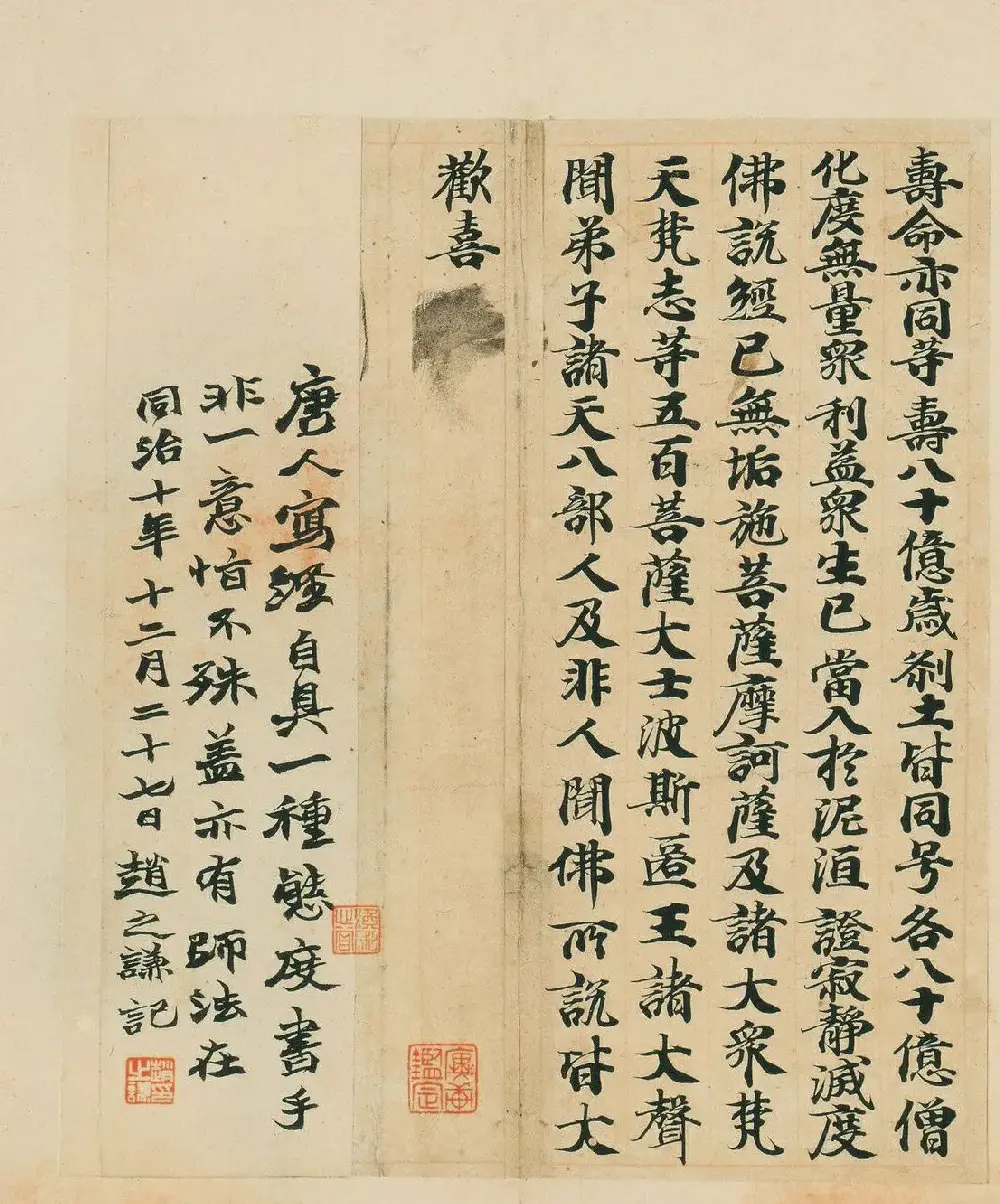 壽命亦同等壽八十億歲刹土皆同号各八十億僧
化度無量眾利益眾生已當入於泥洹證寂靜滅度
佛說經已無垢施菩薩摩訶薩及諸大眾梵
天梵志等五百菩薩大士波斯匿王諸大聲
聞弟子諸天八部人及非人聞佛所說皆大
歡喜
唐人寫經自具一種態度書手
非一意恉不殊蓋亦有師法在
同治十年十二月二十七日趙之謙記